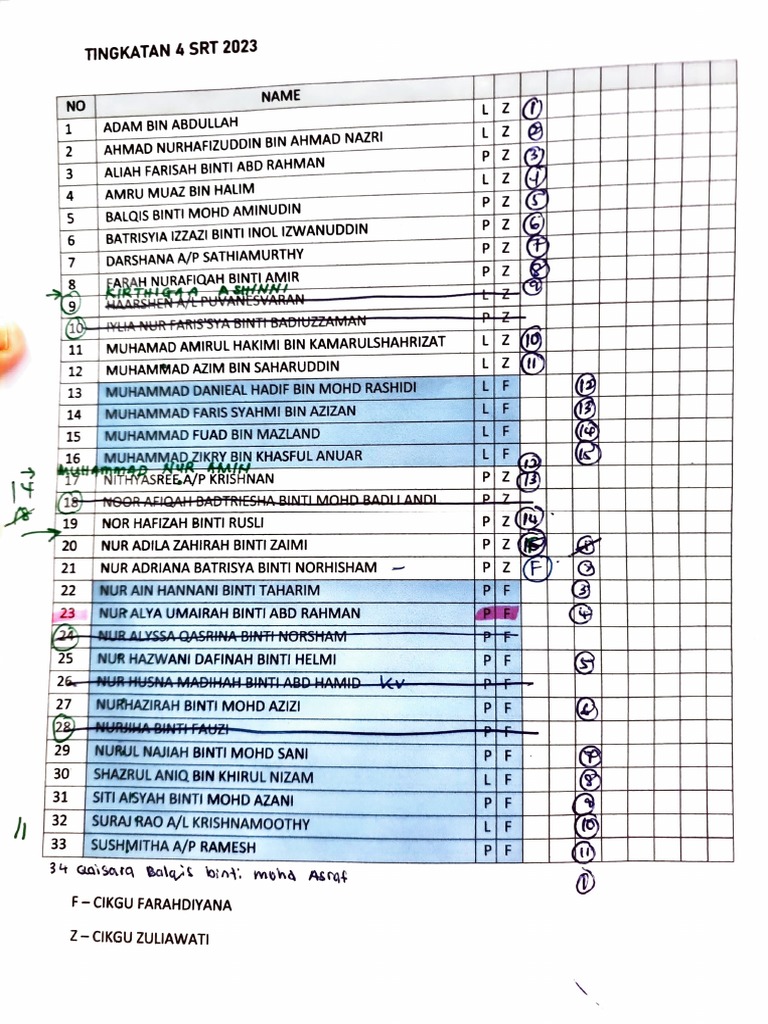 TINGKATAN 4 SRT 2023
NO NAME
1 ADAM BIN ABDULLAH L Z 1
2 AHMAD NURHAFIZUDDIN BIN AHMAD NAZRI L Z 2
3 ALIAH FARISAH BINTI ABD RAHMAN P Z 3
4 AMRU MUAZ BIN HALIM L Z 4
5 BALQIS BINTI MOHD AMINUDIN P Z 5
6 BATRISYIA IZZAZI BINTI INOL IZWANUDDIN P Z 6
7 DARSHANA A/P SATHIAMURTHY P Z 7
8 FARAH NURAFIQAH BINTI AMIR P Z 8
→ KIRTHIGAA ASHINNI 9
9 HAARSHEN A/L PUVANESVARAN L Z
10 IYLIA NUR FARIS'SYA BINTI BADIUZZAMAN P Z
11 MUHAMAD AMIRUL HAKIMI BIN KAMARULSHAHRIZAT L Z 10
12 MUHAMMAD AZIM BIN SAHARUDDIN L Z 11
13 MUHAMMAD DANIEAL HADIF BIN MOHD RASHIDI L F 12
14 MUHAMMAD FARIS SYAHMI BIN AZIZAN L F 13
15 MUHAMMAD FUAD BIN MAZLAND L F 14
16 MUHAMMAD ZIKRY BIN KHASFUL ANUAR L F 15
→ MUHAMMAD NUR AMIN 12
17 NITHYASREE A/P KRISHNAN P Z 13
14
18 NOOR AFIQAH BADTRIESHA BINTI MOHD BADLI ANDI P Z
19 NOR HAFIZAH BINTI RUSLI P Z 14
20 NUR ADILA ZAHIRAH BINTI ZAIMI P Z 15 1
21 NUR ADRIANA BATRISYA BINTI NORHISHAM – P Z F 2
22 NUR AIN HANNANI BINTI TAHARIM P F 3
23 NUR ALYA UMAIRAH BINTI ABD RAHMAN P F 4
24 NUR ALYSSA QASRINA BINTI NORSHAM P F
25 NUR HAZWANI DAFINAH BINTI HELMI P F 5
26 NUR HUSNA MADIHAH BINTI ABD HAMID KV P F
27 NURHAZIRAH BINTI MOHD AZIZI P F 6
28 NURJIHA BINTI FAUZI P F
29 NURUL NAJIAH BINTI MOHD SANI P F 7
30 SHAZRUL ANIQ BIN KHIRUL NIZAM L F 8
31 SITI AISYAH BINTI MOHD AZANI P F 9
11 32 SURAJ RAO A/L KRISHNAMOOTHY L F 10
33 SUSHMITHA A/P RAMESH P F 11
34 Qaisara Balqis binti mohd Asraf 1
F – CIKGU FARAHDIYANA
Z – CIKGU ZULIAWATI